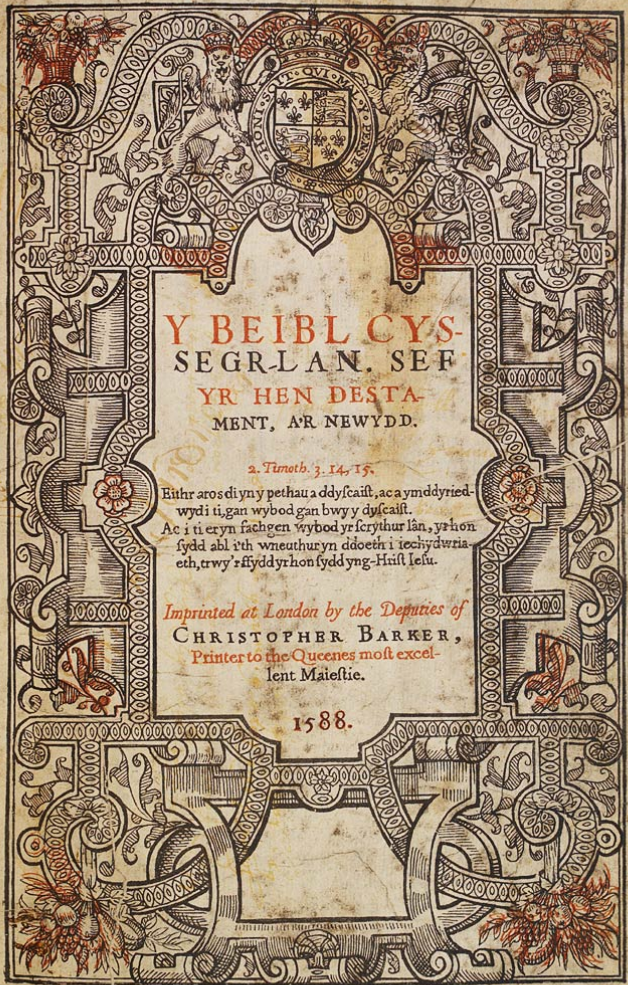 HONI SOIT QVI MAL Y PENSE
Y BEIBL CYS-
SEGR-LAN. SEF
YR HEN DESTA-
MENT, A'R NEWYDD.
2. Timoth. 3. 14, 15.
Eithr aros di yn y pethau a ddyſcaiſt, ac a ymddyried-
wyd i ti, gan wybod gan bwy y dyſcaiſt.
Ac i ti er yn fachgen wybod yr ſcrythur lân, yr hon
ſydd abl i'th wneuthur yn ddoeth i iechydwria-
eth, trwy'r ffydd yr hon ſydd yng-Hriſt Ieſu.
Imprinted at London by the Deputies of
CHRISTOPHER BARKER,
Printer to the Queenes moſt excel-
lent Maieſtie.
1588.